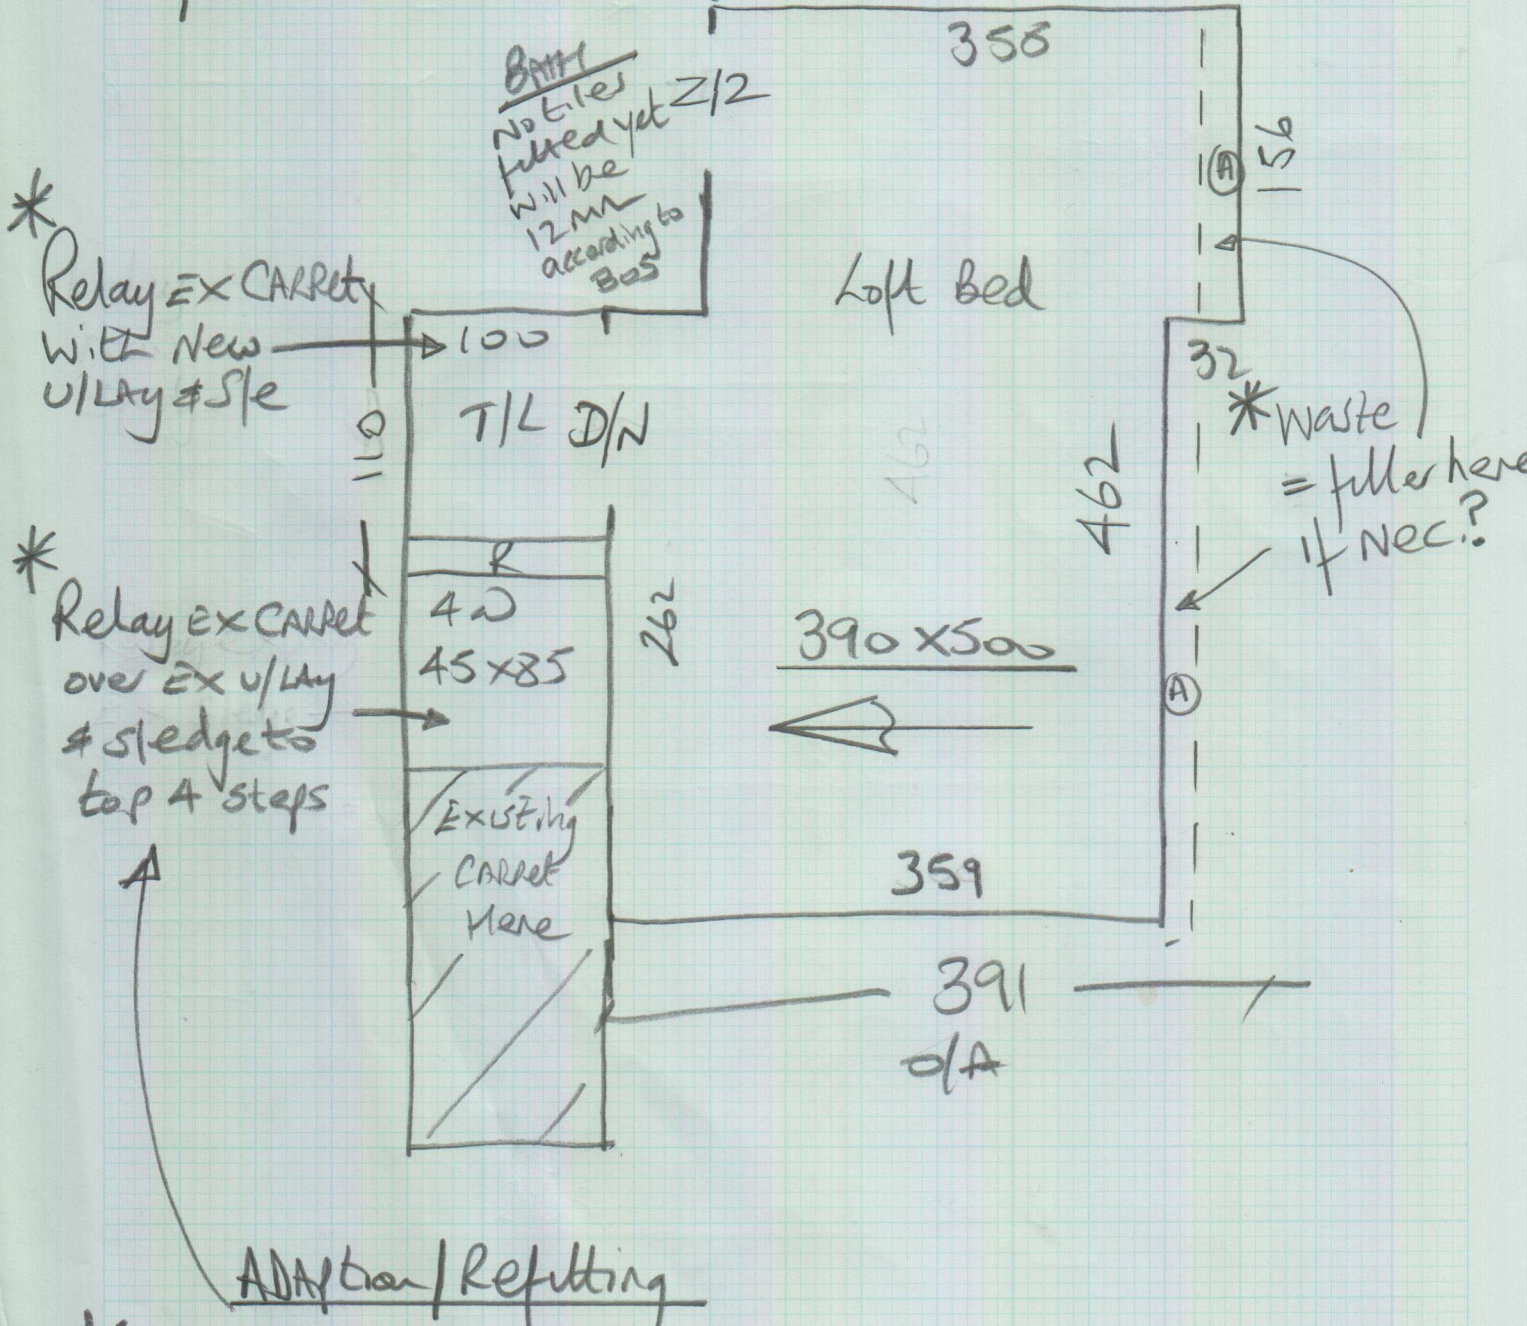 358
BATH
No tiles
fitted yet
will be
12mm
according to
BOS
Z/2
156
A
*
Relay EX CARPet
With New
U/LAY & S/e
110
100
T/L D/N
Loft Bed
32
* Waste
= filler here
if NEC.?
462
462
*
Relay EX CARPet
over EX U/LAY
& sledge to
top 4 steps
R
4W
45x85
262
390 x 500
A
Existing
CARPet
Here
359
391
O/A
ADAption / Refitting